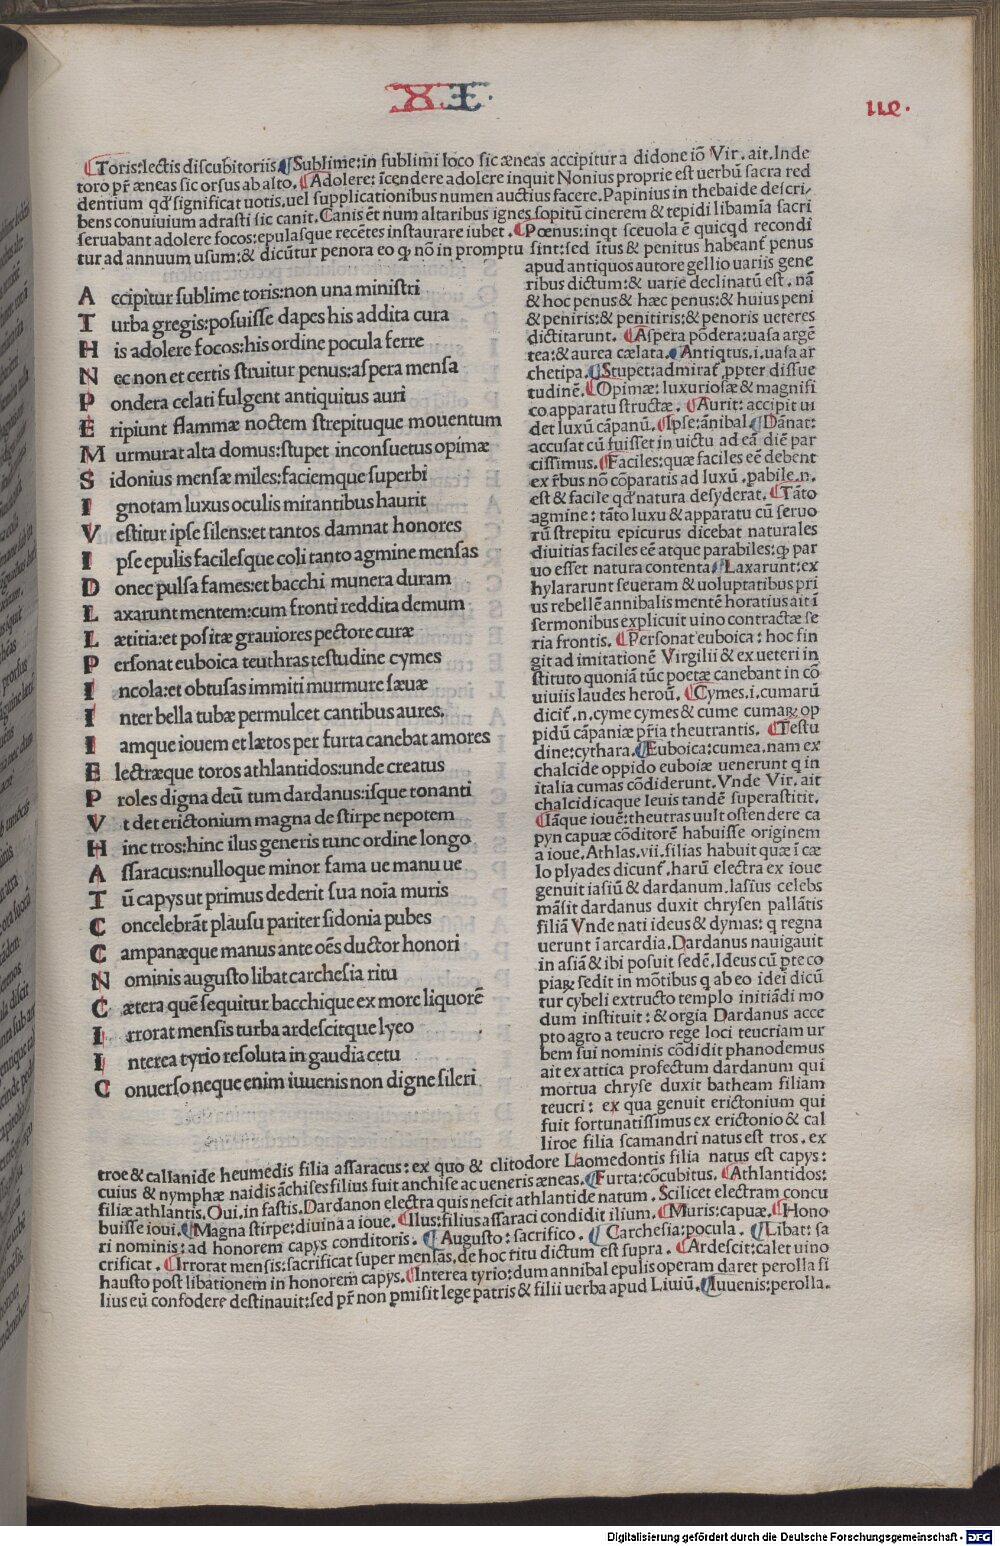 XI
119.
¶Toris:lectis discubitoriis.¶Sublime:in sublimi loco sic æneas accipitur a didone iõ Vir. ait. Inde
toro pr̃ æneas sic orsus ab alto. ¶Adolere: ĩcendere adolere inquit Nonius proprie est uerbũ sacra red
dentium qd̃ significat uotis, uel supplicationibus numen auctius facere. Papinius in thebaide descri/
bens conuiuium adrasti sic canit. Canis ẽt num altaribus ignes sopitũ cinerem & tepidi libamĩa sacri
seruabant adolere focos: epulasque recẽtes instaurare iubet. ¶Pœnus: inqt sceuola ẽ quicqd recondi
tur ad annuum usum: & dicũtur penora eo ꝙ nõ in promptu sint: sed ĩtus & penitus habeant̃ penus
apud antiquos autore gellio uariis gene
ribus dictum: & uarie declinatũ est. nã
& hoc penus & hæc penus: & huius peni
& peniris: & penitiris: & penoris ueteres
dictitarunt. ¶Aspera põdera: uasa argẽ
tea: & aurea cælata. ¶Antiqtus.i. uasa ar
chetipa. ¶Stupet: admirat̃ ꝓpter dissue
tudinẽ. ¶Opimæ: luxuriosæ & magnifi
co apparatu structæ. ¶Aurit: accipit ui
det luxũ cãpanũ. ¶Ipse: ãnibal ¶Dãnat:
accusat cũ fuisset in uictu ad eã diẽ par
cissimus. ¶Faciles: quæ faciles eẽ debent
ex r̃bus nõ cõparatis ad luxũ. pabile.n.
est & facile qd̃ natura desyderat. ¶Tãto
agmine: tãto luxu & apparatu cũ seruo
rũ strepitu epicurus dicebat naturales
diuitias faciles eẽ atque parabiles: ꝙ par
uo esset natura contenta ¶Laxarunt: ex
hylararunt seueram & uoluptatibus pri
us rebellẽ annibalis mentẽ horatius ait ĩ
sermonibus explicuit uino contractæ se
ria frontis. ¶Personat euboica: hoc fin
git ad imitationẽ Virgilii & ex ueteri in
stituto quoniã tũc poetæ canebant in cõ
uiuiis laudes heroũ. ¶Cymes.i. cumarũ
dicit̃.n. cyme cymes & cume cumaꝝ op
pidũ cãpaniæ pr̃ia theutrantis. ¶Testu
dine: cythara. ¶Euboica: cumea. nam ex
chalcide oppido euboiæ uenerunt q in
italia cumas cõdiderunt. Vnde Vir. ait
chalcidicaque leuis tandẽ superastitit.
¶Iãque ioue: theutras uult ostendere ca
pyn capuæ cõditorẽ habuisse originem
a ioue. Athlas .vii. filias habuit quæ ĩ cæ
lo plyades dicunt̃. harũ electra ex ioue
genuit iasiũ & dardanum. Iasius celebs
mãsit dardanus duxit chrysen pallãtis
filiã Vnde nati ideus & dymas: q regna
uerunt ĩ arcardia. Dardanus nauigauit
in asiã & ibi posuit sedẽ. Ideus cũ ꝑte co
piaꝝ sedit in mõtibus q ab eo idei dicũ
tur cybeli extructo templo initiãdi mo
dum instituit: & orgia Dardanus acce
pto agro a teucro rege loci teucriam ur
bem sui nominis cõdidit phanodemus
ait ex attica profectum dardanum qui
mortua chryse duxit batheam filiam
teucri: ex qua genuit erictonium qui
fuit fortunatissimus ex erictonio & cal
liroe filia scamandri natus est tros. ex
A ccipitur sublime toris: non una ministri
T urba gregis: posuisse dapes his addita cura
H is adolere focos: his ordine pocula ferre
N ec non et certis struitur penus: aspera mensa
P ondera celati fulgent antiquitus auri
E ripiunt flammæ noctem strepituque mouentum
M urmurat alta domus: stupet inconsuetus opimæ
S idonius mensæ miles: faciemque superbi
I gnotam luxus oculis mirantibus haurit
V estitur ipse silens: et tantos damnat honores
I pse epulis facilesque coli tanto agmine mensas
D onec pulsa fames: et bacchi munera duram
L axarunt mentem: cum fronti reddita demum
L ætitia: et positæ grauiores pectore curæ
P ersonat euboica teuthras testudine cymes
I ncola: et obtusas immiti murmure sæuæ
I nter bella tubæ permulcet cantibus aures.
I amque iouem et lætos per furta canebat amores
E lectræque toros athlantidos: unde creatus
P roles digna deũ tum dardanus: isque tonanti
V t det erictonium magna de stirpe nepotem
H inc tros: hinc ilus generis tunc ordine longo
A ssaracus: nulloque minor fama ue manu ue
T ũ capys ut primus dederit sua noĩa muris
C oncelebrãt plausu pariter sidonia pubes
C ampanæque manus ante oẽs ductor honori
N ominis augusto libat carchesia ritu
C ætera quẽ sequitur bacchique ex more liquorẽ
I rrorat mensis turba ardescitque lyeo
I nterea tyrio resoluta in gaudia cetu
C onuerso neque enim iuuenis non digne sileri
troe & callanide heumedis filia assaracus: ex quo & clitodore Laomedontis filia natus est capys:
cuius & nymphæ naidis ãchises filius fuit anchise ac ueneris æneas. ¶Furta: cõcubitus. ¶Athlantidos:
filiæ athlantis. Oui. in fastis. Dardanon electra quis nescit athlantide natum. Scilicet electram concu
buisse ioui. ¶Magna stirpe: diuina a ioue. ¶Ilus: filius assaraci condidit ilium. ¶Muris: capuæ. ¶Hono
ri nominis: ad honorem capys conditoris. ¶Augusto: sacrifico. ¶Carchesia: pocula. ¶Libat: sa
crificat. ¶Irrorat mensis: sacrificat super mensas. de hoc ritu dictum est supra. ¶Ardescit: calet uino
hausto post libationem in honorem capys. ¶Interea tyrio: dum annibal epulis operam daret perolla si
lius eũ confodere destinauit: sed pr̃ non ꝑmisit lege patris & filii uerba apud Liuiũ. ¶Iuuenis: perolla.
Digitalisierung gefördert durch die Deutsche Forschungsgemeinschaft - DFG